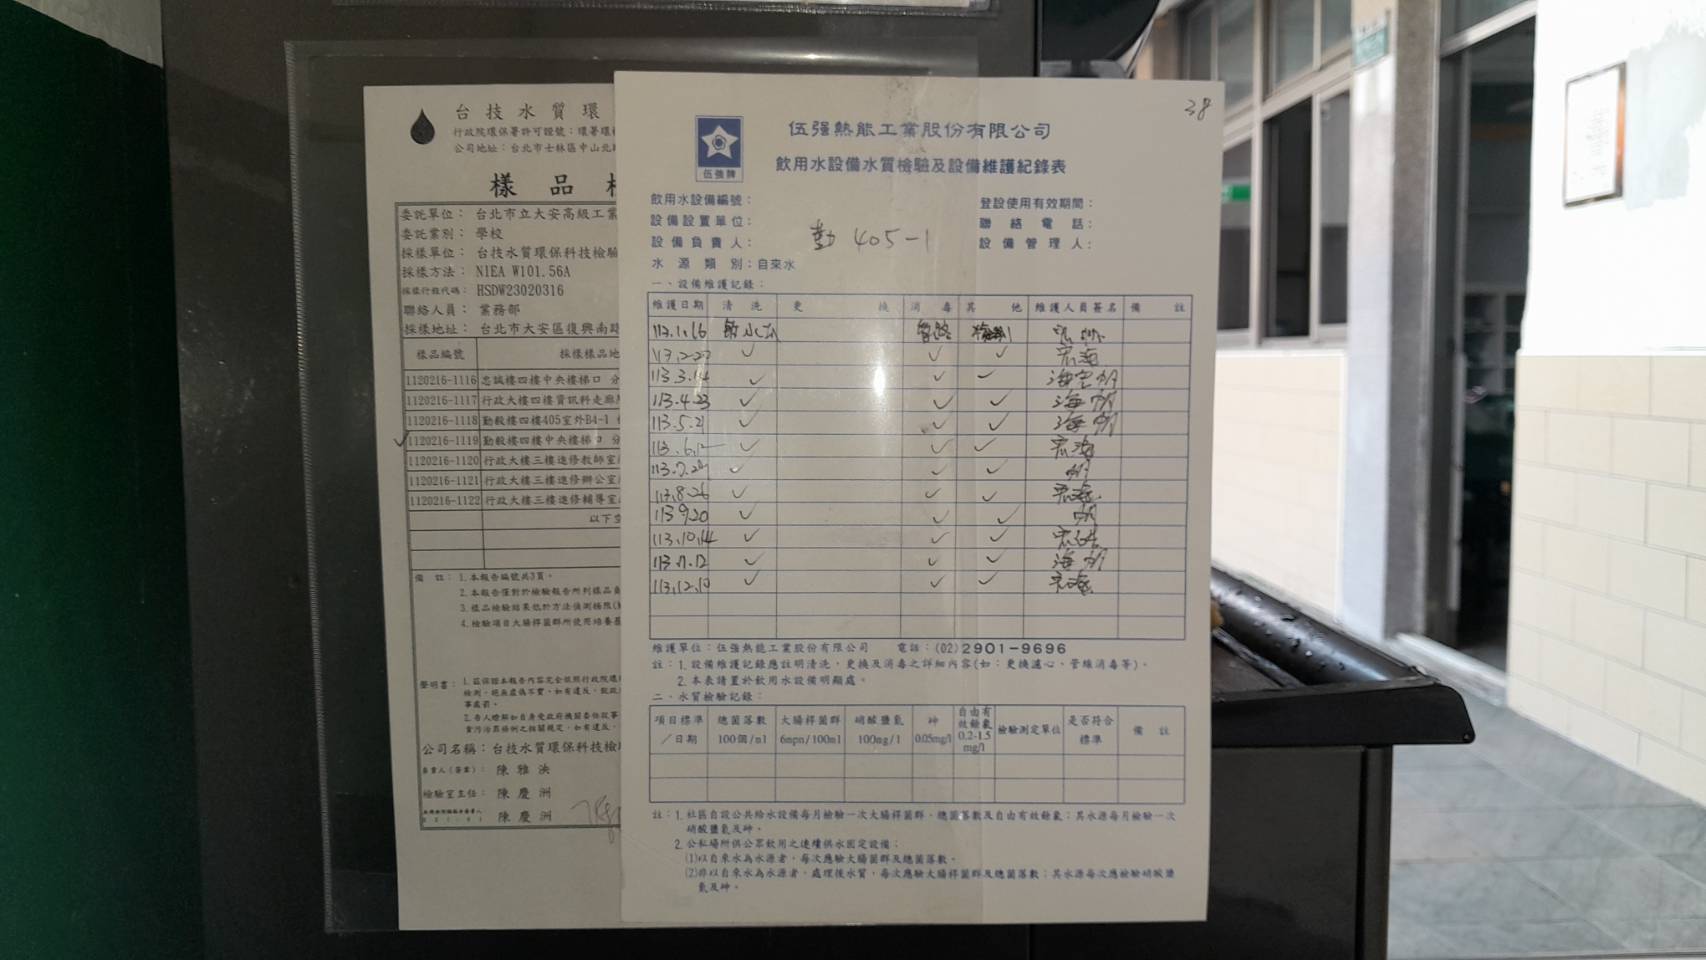 台技水質環
行政院環保署許可證號：環署環
公司地址：台北市士林區中山北
樣品
委託單位：台北市立大安高級工業
委託業別：學校
採樣單位：台技水質環保科技檢驗
採樣方法：NIEA W101.56A
採樣行程代碼：HSDW23020316
聯絡人員：業務部
採樣地址：台北市大安區復興南路
樣品編號 採樣樣品地
1120216-1116 忠誠樓四樓中央樓梯口
1120216-1117 行政大樓四樓資訊科走廊
1120216-1118 勤毅樓四樓405室外B4-1
✓ 1120216-1119 勤毅樓四樓中央樓梯口
1120216-1120 行政大樓三樓進修教師室
1120216-1121 行政大樓三樓進修辦公室
1120216-1122 行政大樓三樓進修輔導室
以下空
備註：1.本報告編號共3頁。
2.本報告僅對於檢驗報告所列樣品負
3.樣品檢驗結果低於方法偵測極限
4.檢驗項目大腸桿菌群所使用培養基
聲明書：1.茲保證本報告內容完全依照行政院環
檢測，絕無虛偽不實，如有違反，
事處前。
2.吾人瞭解如自身受政府機關委任從事
公司名稱：台技水質環保科技檢
負責人(簽章)：陳雅泱
檢驗室主任：陳慶洲
陳慶洲
38
伍強牌
伍強熱能工業股份有限公司
飲用水設備水質檢驗及設備維護紀錄表
飲用水設備編號： 登設使用有效期間：
設備設置單位： 聯絡電話：
設備負責人： 勤 405-1 設備管理人：
水源類別：自來水
一、設備維護記錄：
維護日期 清洗 更換 消毒 其他 維護人員簽名 備註
113.1.16 飲水 管路
113.2.27 ✓ ✓ ✓
113.3.14 ✓ ✓ ✓
113.4.23 ✓ ✓ ✓
113.5.21 ✓ ✓ ✓
113.6.12 ✓ ✓ ✓
113.7. ✓ ✓ ✓
113.8.26 ✓ ✓ ✓
113.9.20 ✓ ✓ ✓
113.10.14 ✓ ✓ ✓
113.11.12 ✓ ✓ ✓
113.12.10 ✓ ✓ ✓
維護單位：伍強熱能工業股份有限公司 電話：(02)2901-9696
註：1.設備維護記錄應註明清洗，更換及消毒之詳細內容(如：更換濾心、管線消毒等)。
2.本表請置於飲用水設備明顯處。
二、水質檢驗記錄：
項目標準／日期 總菌落數 100個/ml 大腸桿菌群 6mpn/100ml 硝酸鹽氮 100mg/l 砷 0.05mg/l 自由有效餘氯 0.2-1.5 mg/l 檢驗測定單位 是否符合標準 備註
註：1.社區自設公共給水設備每月檢驗一次大腸桿菌群、總菌落數及自由有效餘氯；其水源每月檢驗一次
硝酸鹽氮及砷。
2.公私場所供公眾飲用之連續供水固定設備：
(1)以自來水為水源者，每次應驗大腸菌群及總菌落數。
(2)非以自來水為水源者，處理後水質，每次應驗大腸桿菌群及總菌落數；其水源每次應檢驗硝酸鹽
氮及砷。